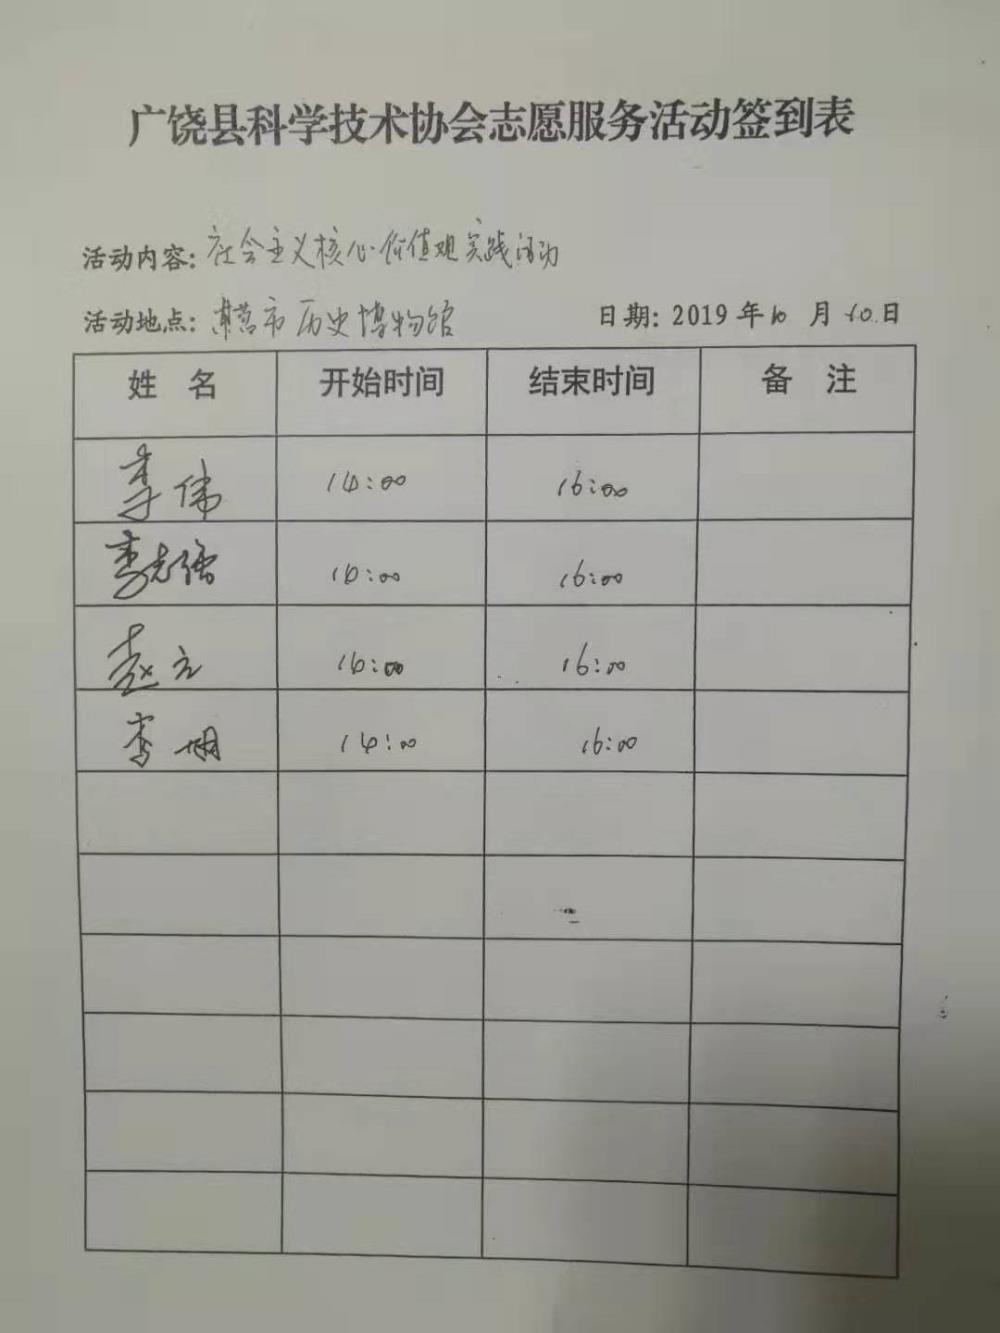 广饶县科学技术协会志愿服务活动签到表
活动内容: 社会主义核心价值观实践活动
活动地点: 东营市历史博物馆 日期: 2019 年 10 月 10 日
姓 名 开始时间 结束时间 备 注
李伟 14:00 16:00
李志强 16:00
赵元 16:00
李明 14:00 16:00